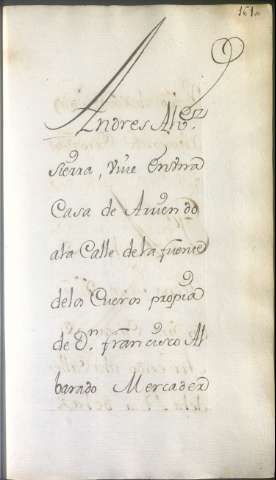 161
Andres Alv.ez
sierra, vive en una
Casa de Arriendo
ala Calle dela fuente
delos Cueros propia
de D.n francisco Al
barado Mercader